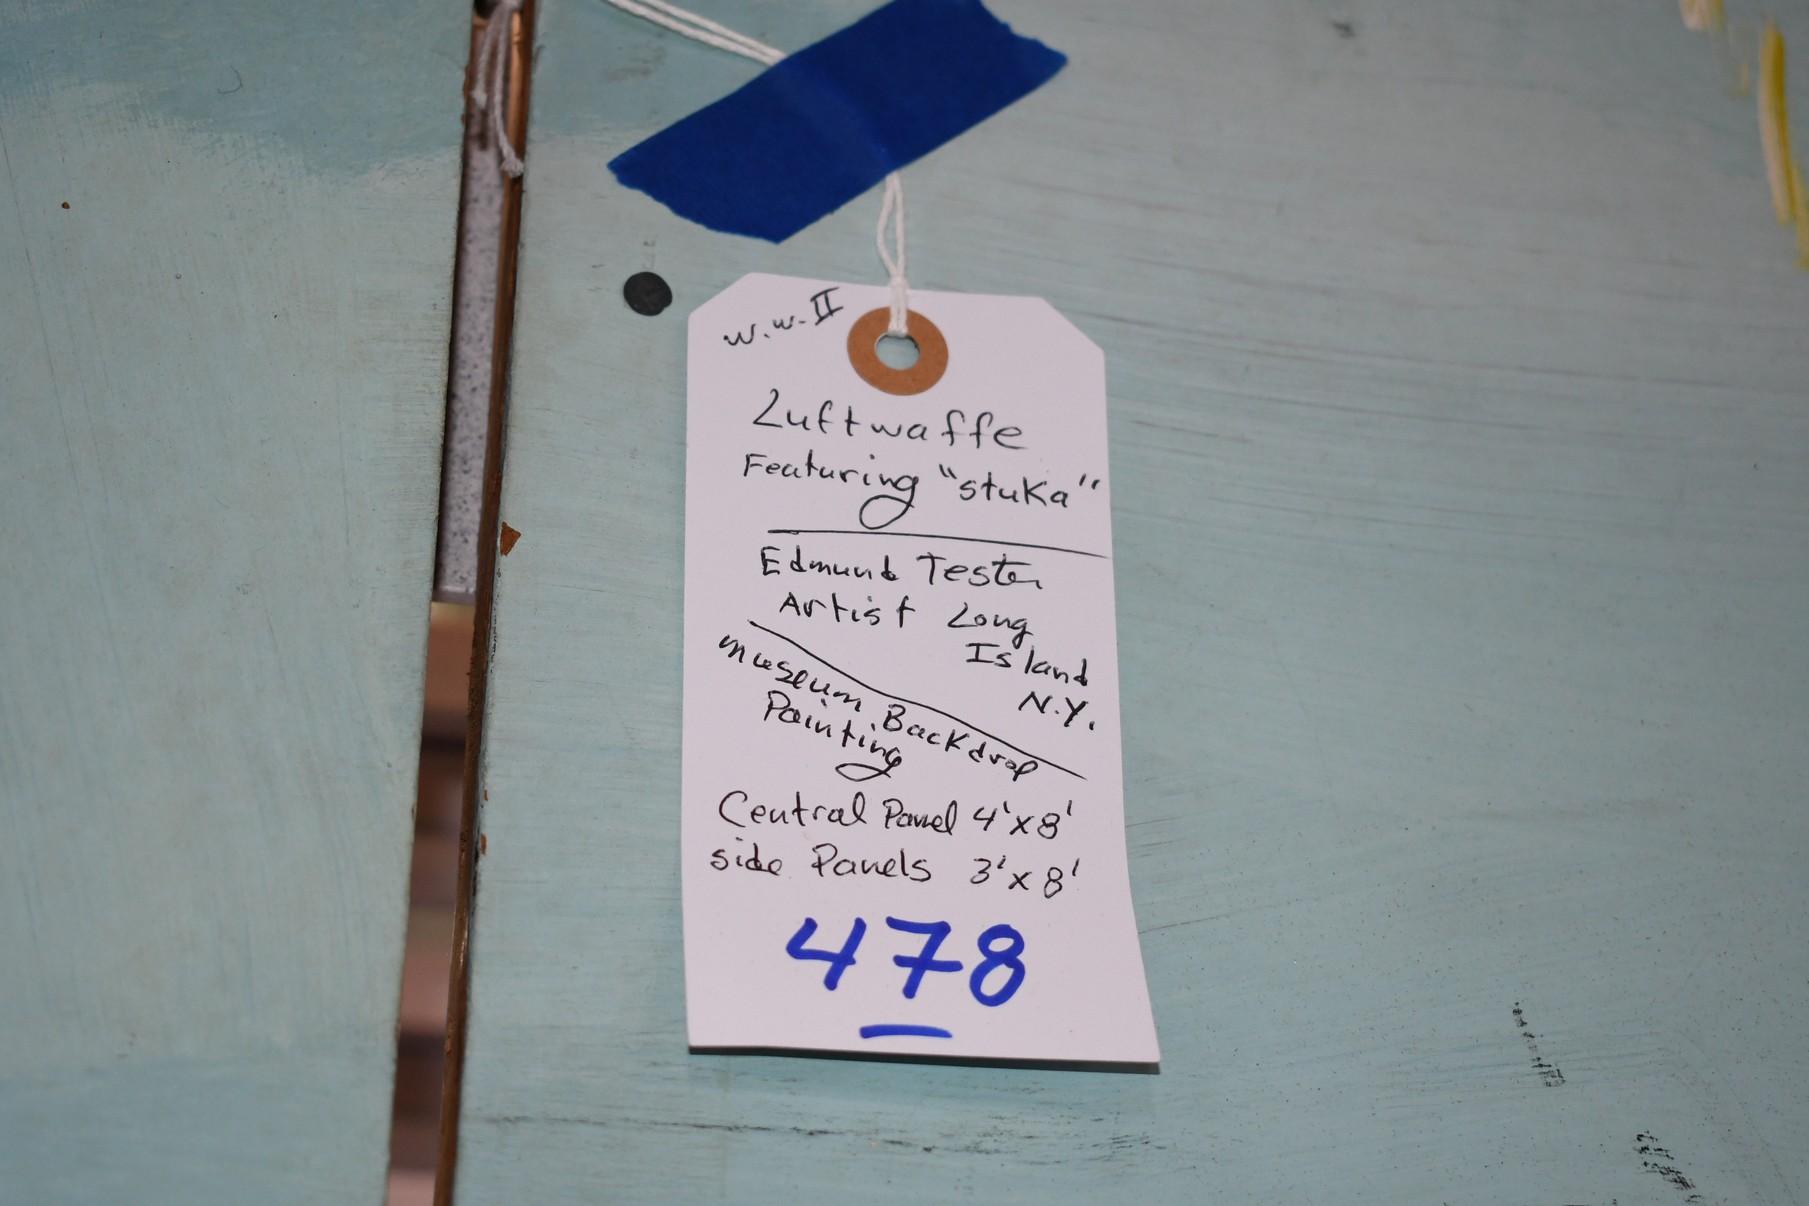 W.W. II
Luftwaffe
Featuring "Stuka"
Edmund Tester
Artist Long
Island
N.Y.
Museum Backdrop
Painting
Central Panel 4'x8'
side Panels 3'x8'
478